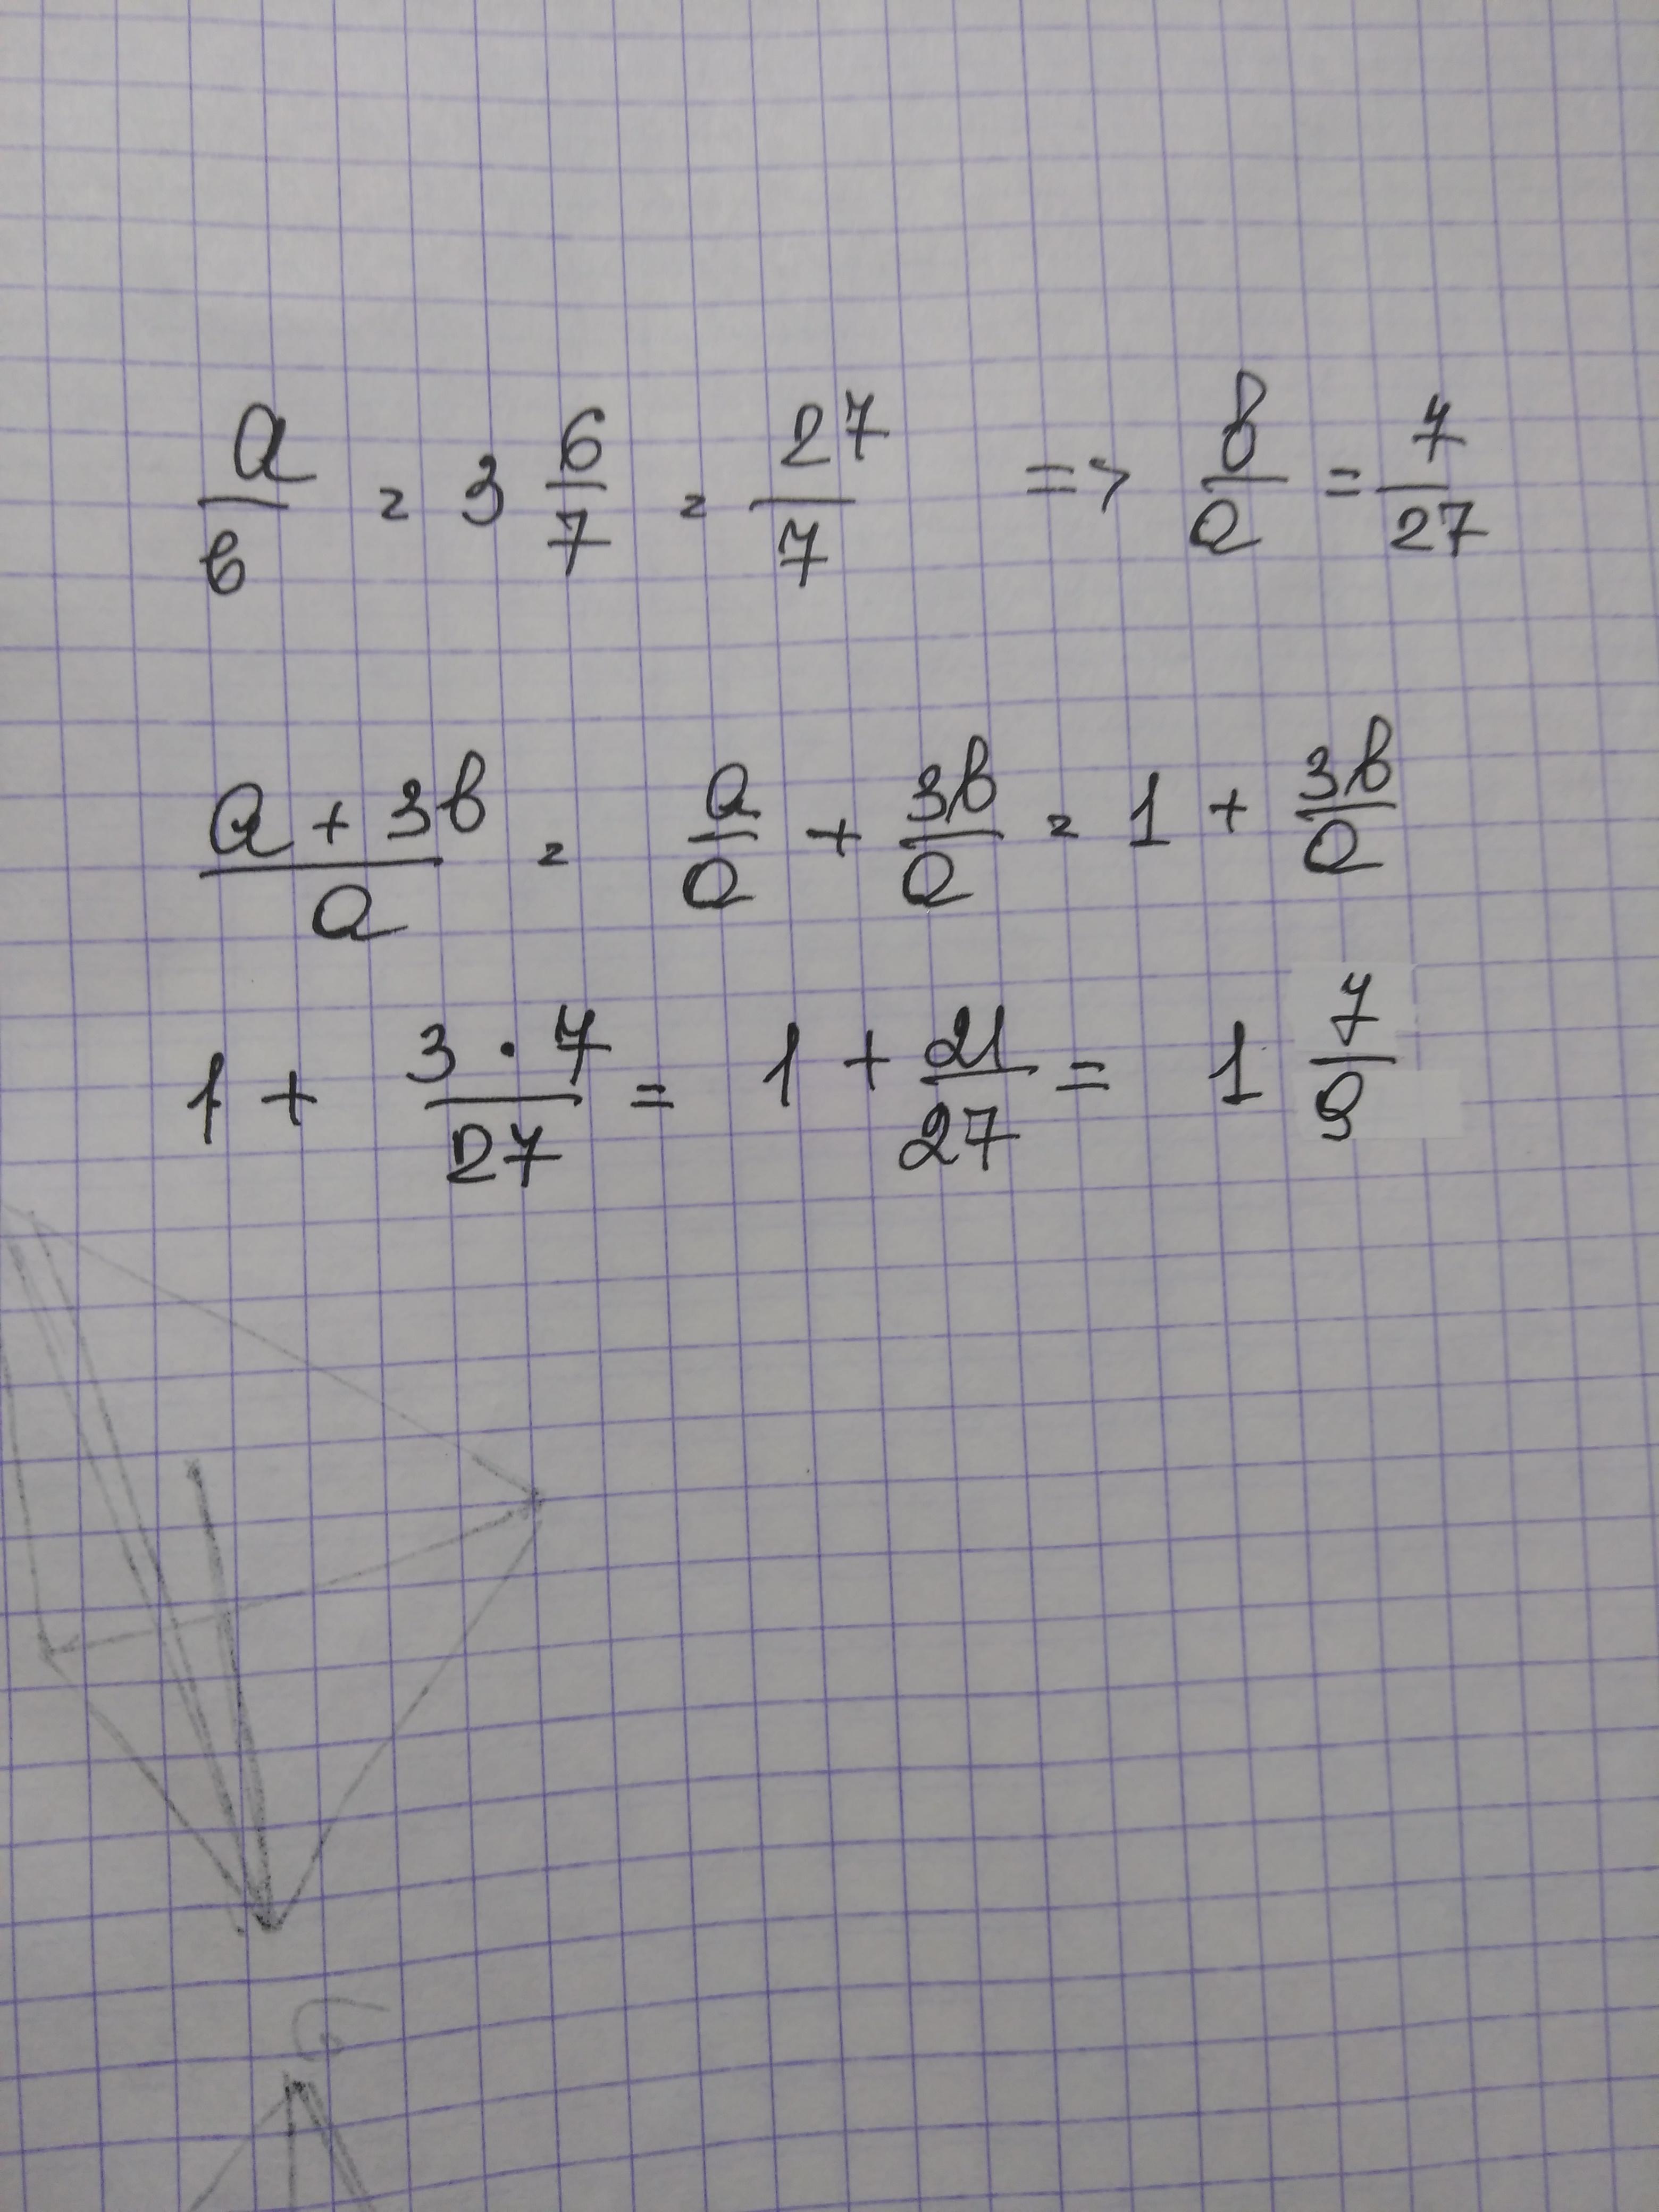 a/b = 3 6/7 = 27/7 => b/a = 7/27
(a + 3b)/a = a/a + 3b/a = 1 + 3b/a
1 + (3 · 7)/27 = 1 + 21/27 = 1 7/9